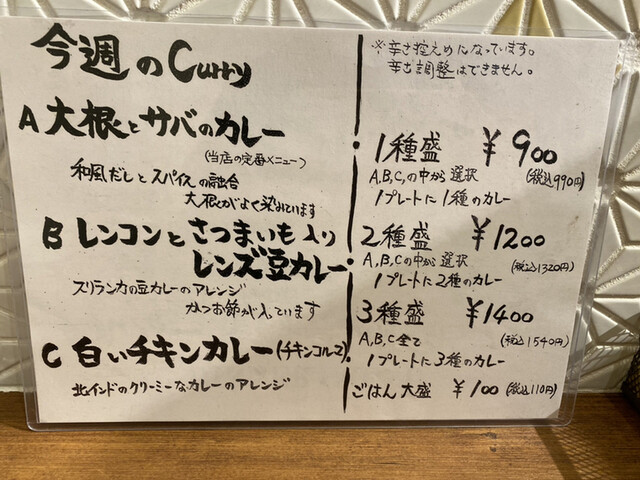 今週のCurry
A 大根とサバのカレー
(当店の定番メニュー)
和風だしとスパイスの融合
大根がよく染みています
B レンコンとさつまいも入り
レンズ豆カレー
スリランカの豆カレーのアレンジ
かつお節が入っています
C 白いチキンカレー(チキンコルマ)
北インドのクリーミーなカレーのアレンジ
※辛さ控えめになっています。
辛さ調整はできません。
・1種盛 ¥900
A,B,C,の中から選択 (税込990円)
1プレートに1種のカレー
・2種盛 ¥1200
A,B,Cの中から選択 (税込1320円)
1プレートに2種のカレー
・3種盛 ¥1400
A,B,C全て (税込1540円)
1プレートに3種のカレー
ごはん大盛 ¥100 (税込110円)